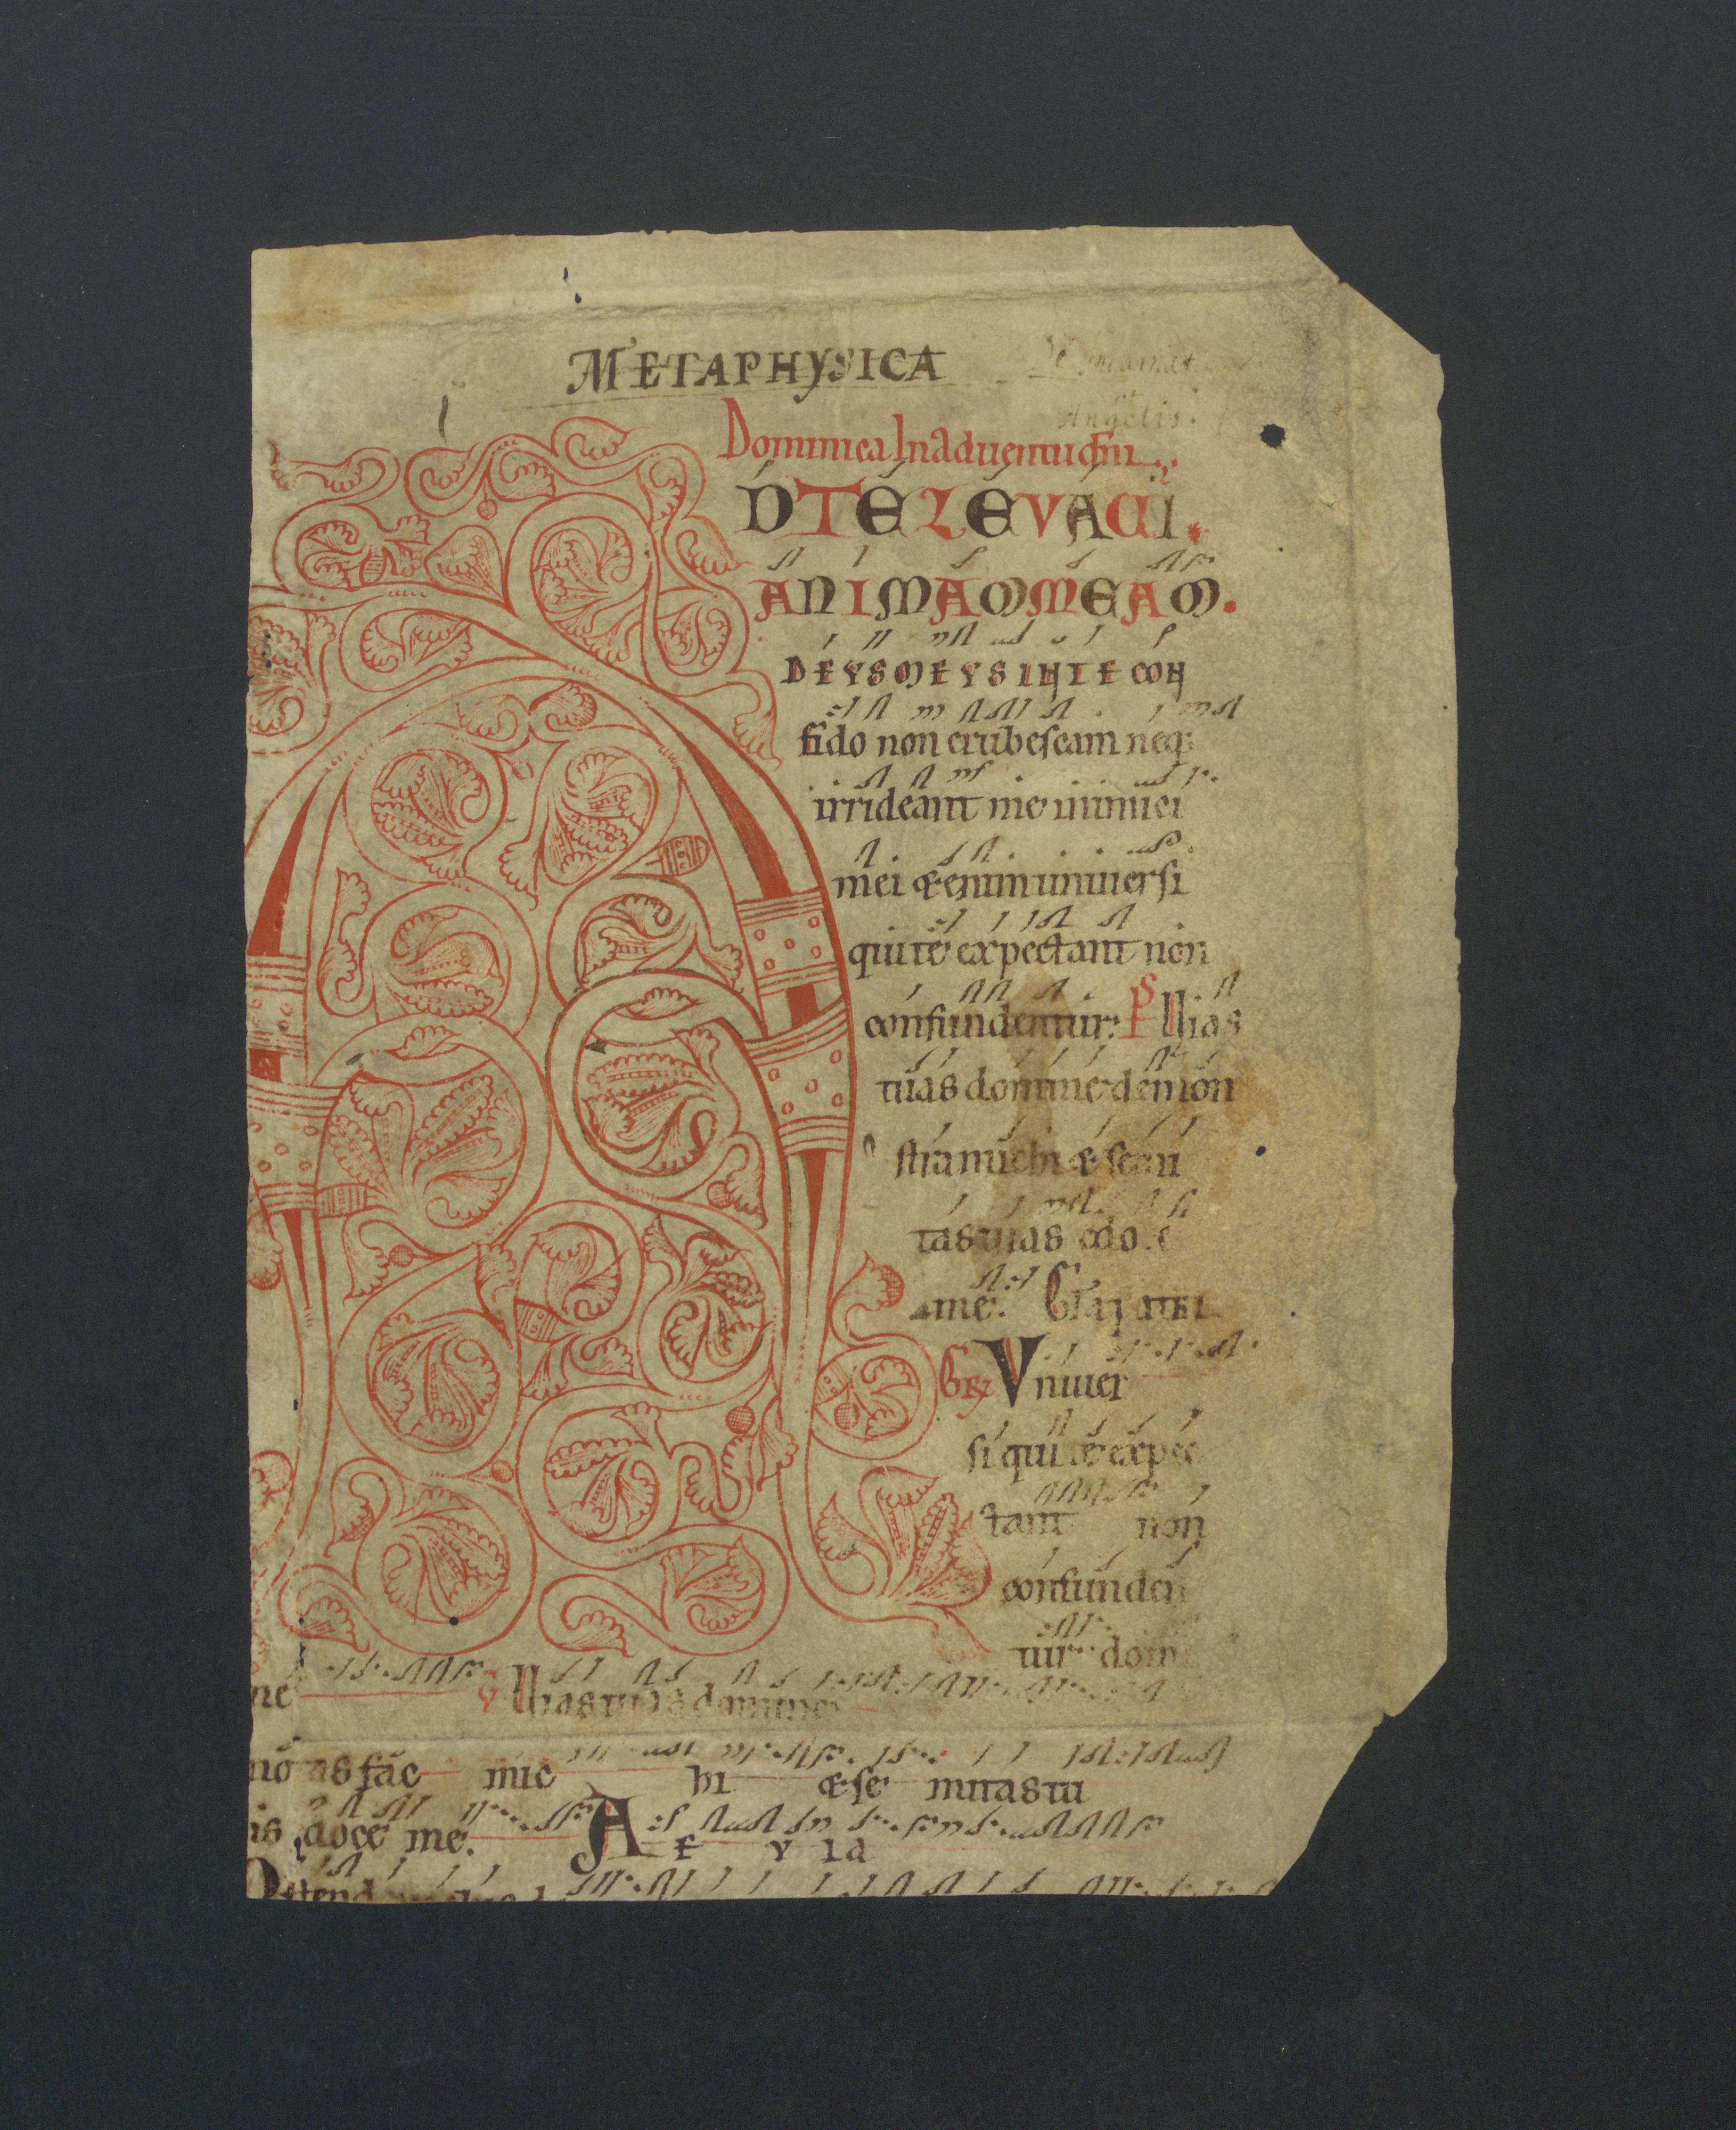 METAPHYSICA
Angelis.
Dominica In aduentu dni
D TE LEVAVI.
ANIMAM MEAM.
DEVS MEVS IN TE CON
fido non erubescam neq;
irrideant me inimici
mei &enim uniuersi
qui te expectant non
confundentur: Ps Uias
tuas domine demon
stra michi & semi
tas tuas edoce
me.
GR Vniuer
si qui te expec
tant non
confunden
tur domi
ne V Uias tuas domine
no as fac mic hi & se mitas tu
as doce me. A E V IA
Ostend